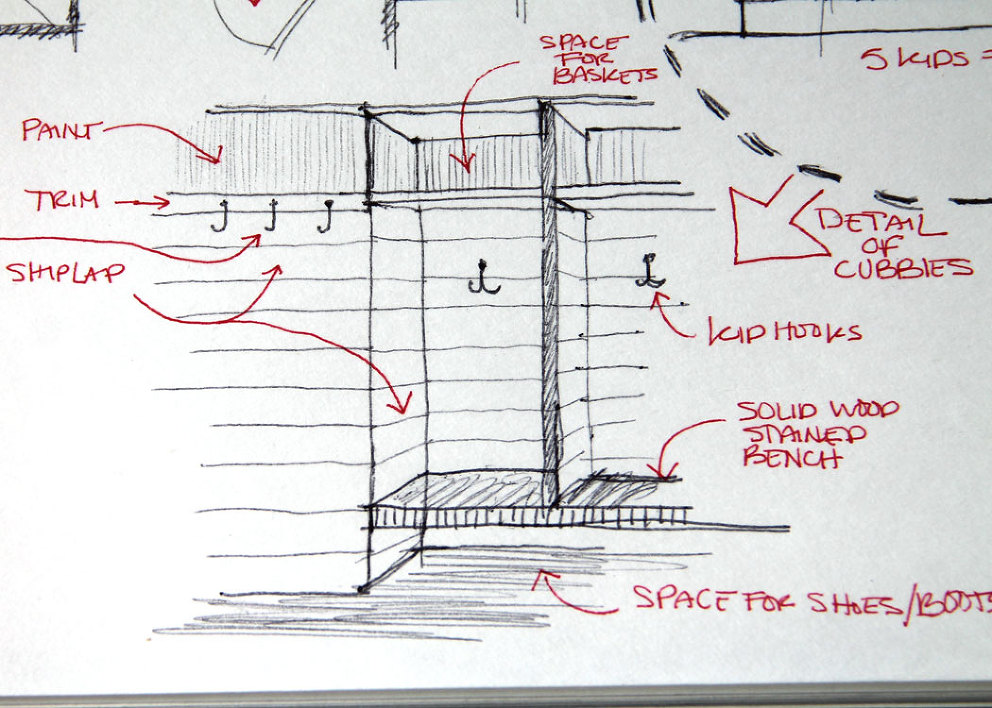 SPACE
FOR
BASKETS
5 KIDS =
PAINT
TRIM
DETAIL
OF
CUBBIES
SHIPLAP
KID HOOKS
SOLID WOOD
STAINED
BENCH
SPACE FOR SHOES/BOOTS